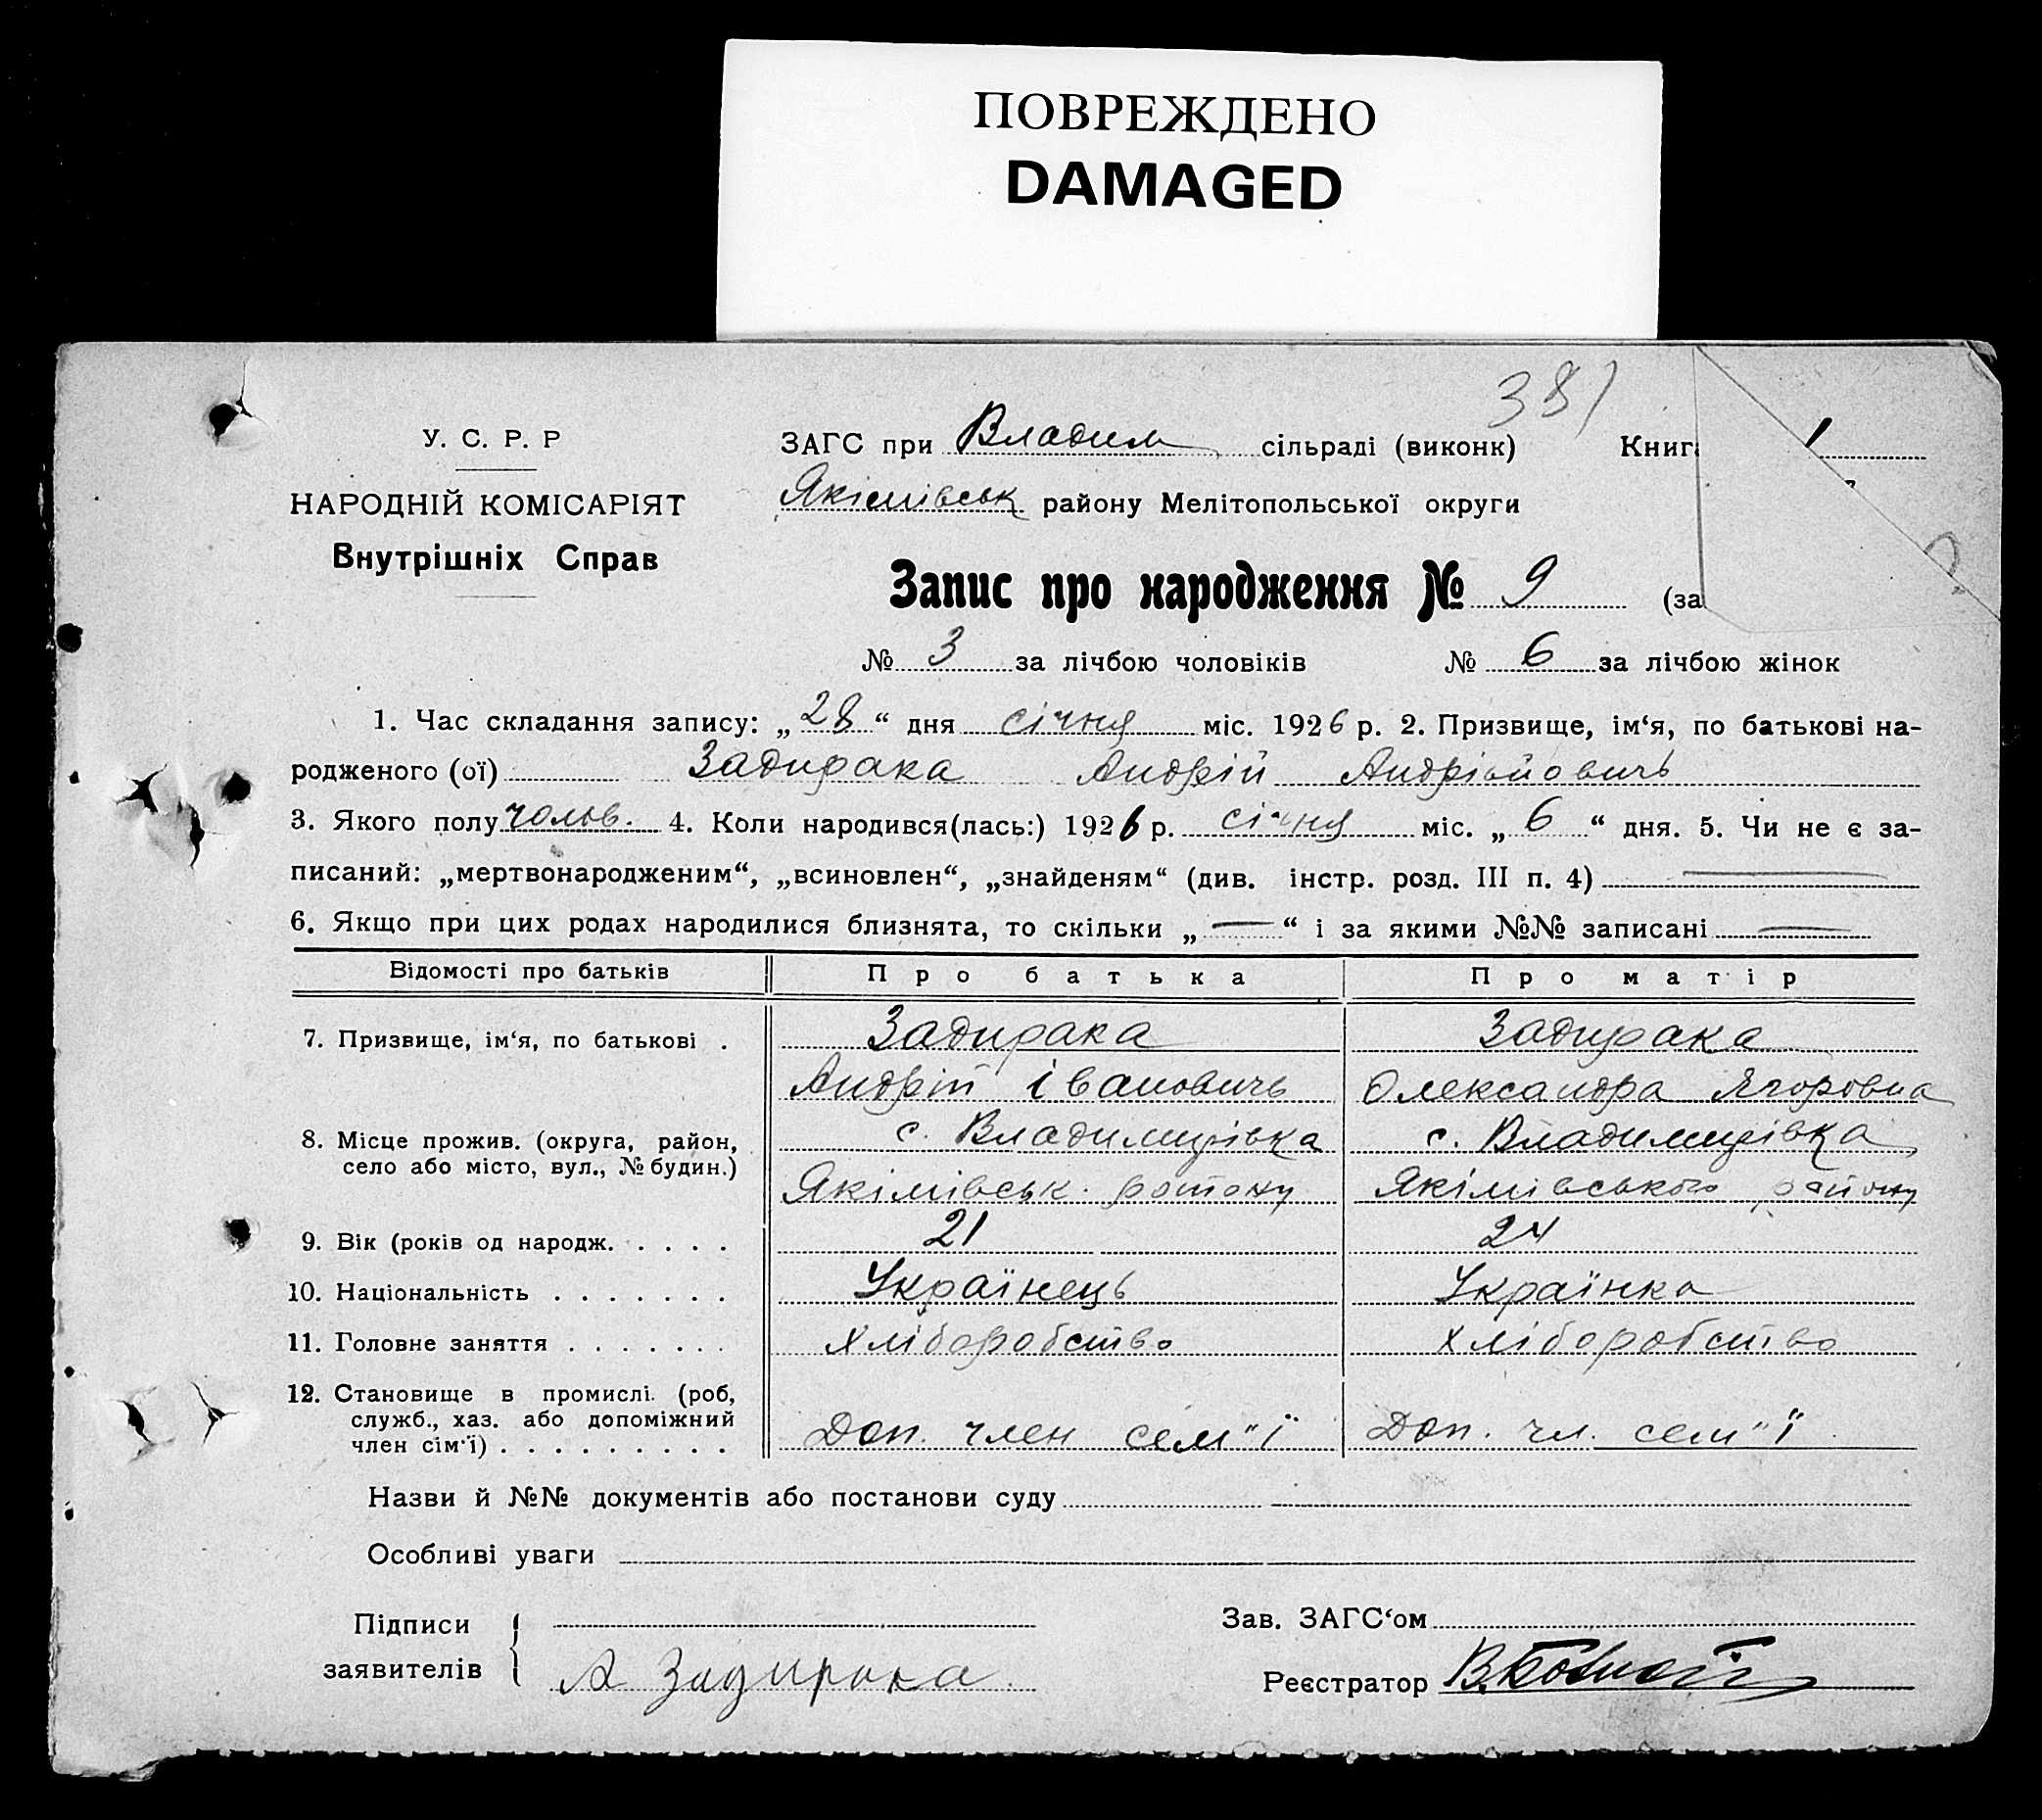 ПОВРЕЖДЕНО
DAMAGED
381
У. С. Р. Р
НАРОДНІЙ КОМІСАРІЯТ
Внутрішніх Справ
ЗАГС при Владим сільраді (виконк) Книг 1
Якімівськ району Мелітопольської округи
Запис про народження № 9 (за
№ 3 за лічбою чоловіків № 6 за лічбою жінок
1. Час складання запису: „28“ дня січня міс. 1926 р. 2. Призвище, ім‘я, по батькові на-
родженого (ої) Задирака Андрій Андрійовичь
3. Якого полу чолов. 4. Коли народився(лась:) 1926 р. січня міс. „6“ дня. 5. Чи не є за-
писаний: „мертвонародженим“, „всиновлен“, „знайденям“ (див. інстр. розд. III п. 4) —
6. Якщо при цих родах народилися близнята, то скільки „—“ і за якими №№ записані —
Відомості про батьків Про батька Про матір
7. Призвище, ім‘я, по батькові . Задирака Задирака
Андрій Івановичь Олександра Ягоровна
8. Місце прожив. (округа, район, с. Владимирівка с. Владимирівка
село або місто, вул., № будин.) Якімівськ. району Якімівського району
9. Вік (років од народж. . . . . 21 24
10. Національність . . . . . . . Українець Українка
11. Головне заняття . . . . . . . Хліборобство Хліборобство
12. Становище в промислі. (роб,
служб., хаз. або допоміжний
член сім‘ї) . . . . . . . . . Доп. член сем"ї Доп. чл. сем"ї
Назви й №№ документів або постанови суду
Особливі уваги
Підписи Зав. ЗАГС‘ом
заявителів А Задирака
Реєстратор